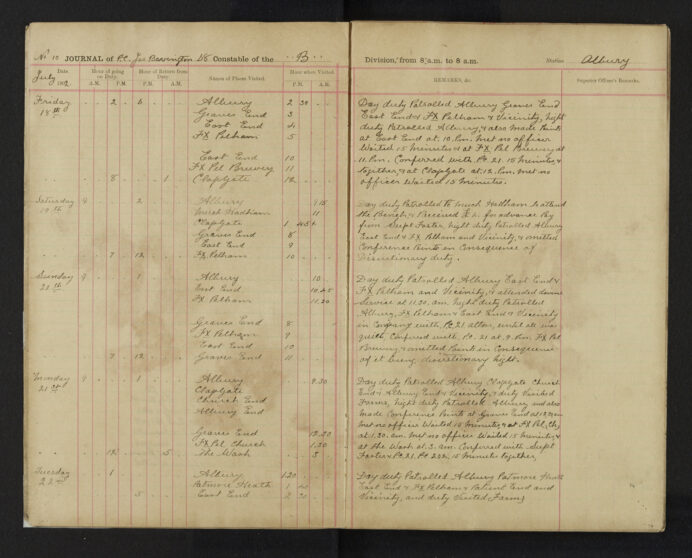 No 10 JOURNAL of P.C. Jas Bevington 218 Constable of the "B"
Date. Hour of going on Duty. Hour of Return from Duty. Names of Places Visited. Hour when Visited.
July A.M. P.M. A.M. P.M. P.M. A.M.
Friday 18th 2 6 Albury 2 30
Graves End 3
East End 4
Fx Pelham 5
East End 10
Fx Pel Brewery 11
8 1 Clapgate 12
Saturday 19th 9 2 Albury 9 15
Much Hadham 11
Clapgate 1
Graves End 8
East End 9
7 12 Fx Pelham 10
Sunday 20th 9 1 Albury 10
East End 10.45
Fx Pelham 11.20
Graves End 8
Fx Pelham 9
East End 10
7 12 Graves End 11
Monday 21st 9 1 Albury 9.30
Clapgate
Church End
Albury End
Graves End 12.30
Fx Pel Church 1.30
12 5 The Wash 3
Tuesday 22nd 1 Albury 1.20
Patmore Heath 1
5 East End 2
Division, from 8 a.m. to 8 a.m. Station Albury
REMARKS, &c. Superior Officer's Remarks.
Day duty Patrolled Albury Graves End
East End & Fx Pelham & Vicinity, night
duty Patrolled Albury, & also Made Points
at East End at 10. P.m. Met no officer
Waited 15 Minutes & at Fx Pel Brewery at
11. P.m. Conferred with Pc 21 15 Minutes,
together, & at Clapgate at 12. P.m. Met no
officer Waited 15 Minutes.
Day duty Patrolled to Much Hadham & attend
the Bench, & Received for advance Pay
from Supt Foster, night duty Patrolled Albury
East End & Fx Pelham and Vicinity, & omitted
Conference Points in Consequence of
Discretionary duty.
Day duty Patrolled Albury East End &
Fx Pelham and Vicinity & attended divine
Service at 11.30. am. night duty Patrolled
Albury, Fx Pelham & East End & Vicinity
in Company with, Pc 21 all was
quiet, Conferred with Pc. 21 at 9. P.m. Fx Pel
Brewery & omitted Points in Consequence
of it being discretionary night.
Day duty Patrolled Albury Clapgate Church
End & Albury End & Vicinity, & duty Visited
Farms, night duty Patrolled Albury and also
Made Conference Points at Graves End at 12.30 am
Met no officer Waited 15 Minutes, & at Fx Pel Ch,
at 1.30. am. Met no officer Waited 15 Minutes, &
at The Wash at 3. am. Conferred with Supt
Foster & Pc 21, Pc 282, 15 Minutes together.
Day duty Patrolled Albury Patmore Heath
East End & Fx Pelham & Patient End and
Vicinity, and duty Visited Farms